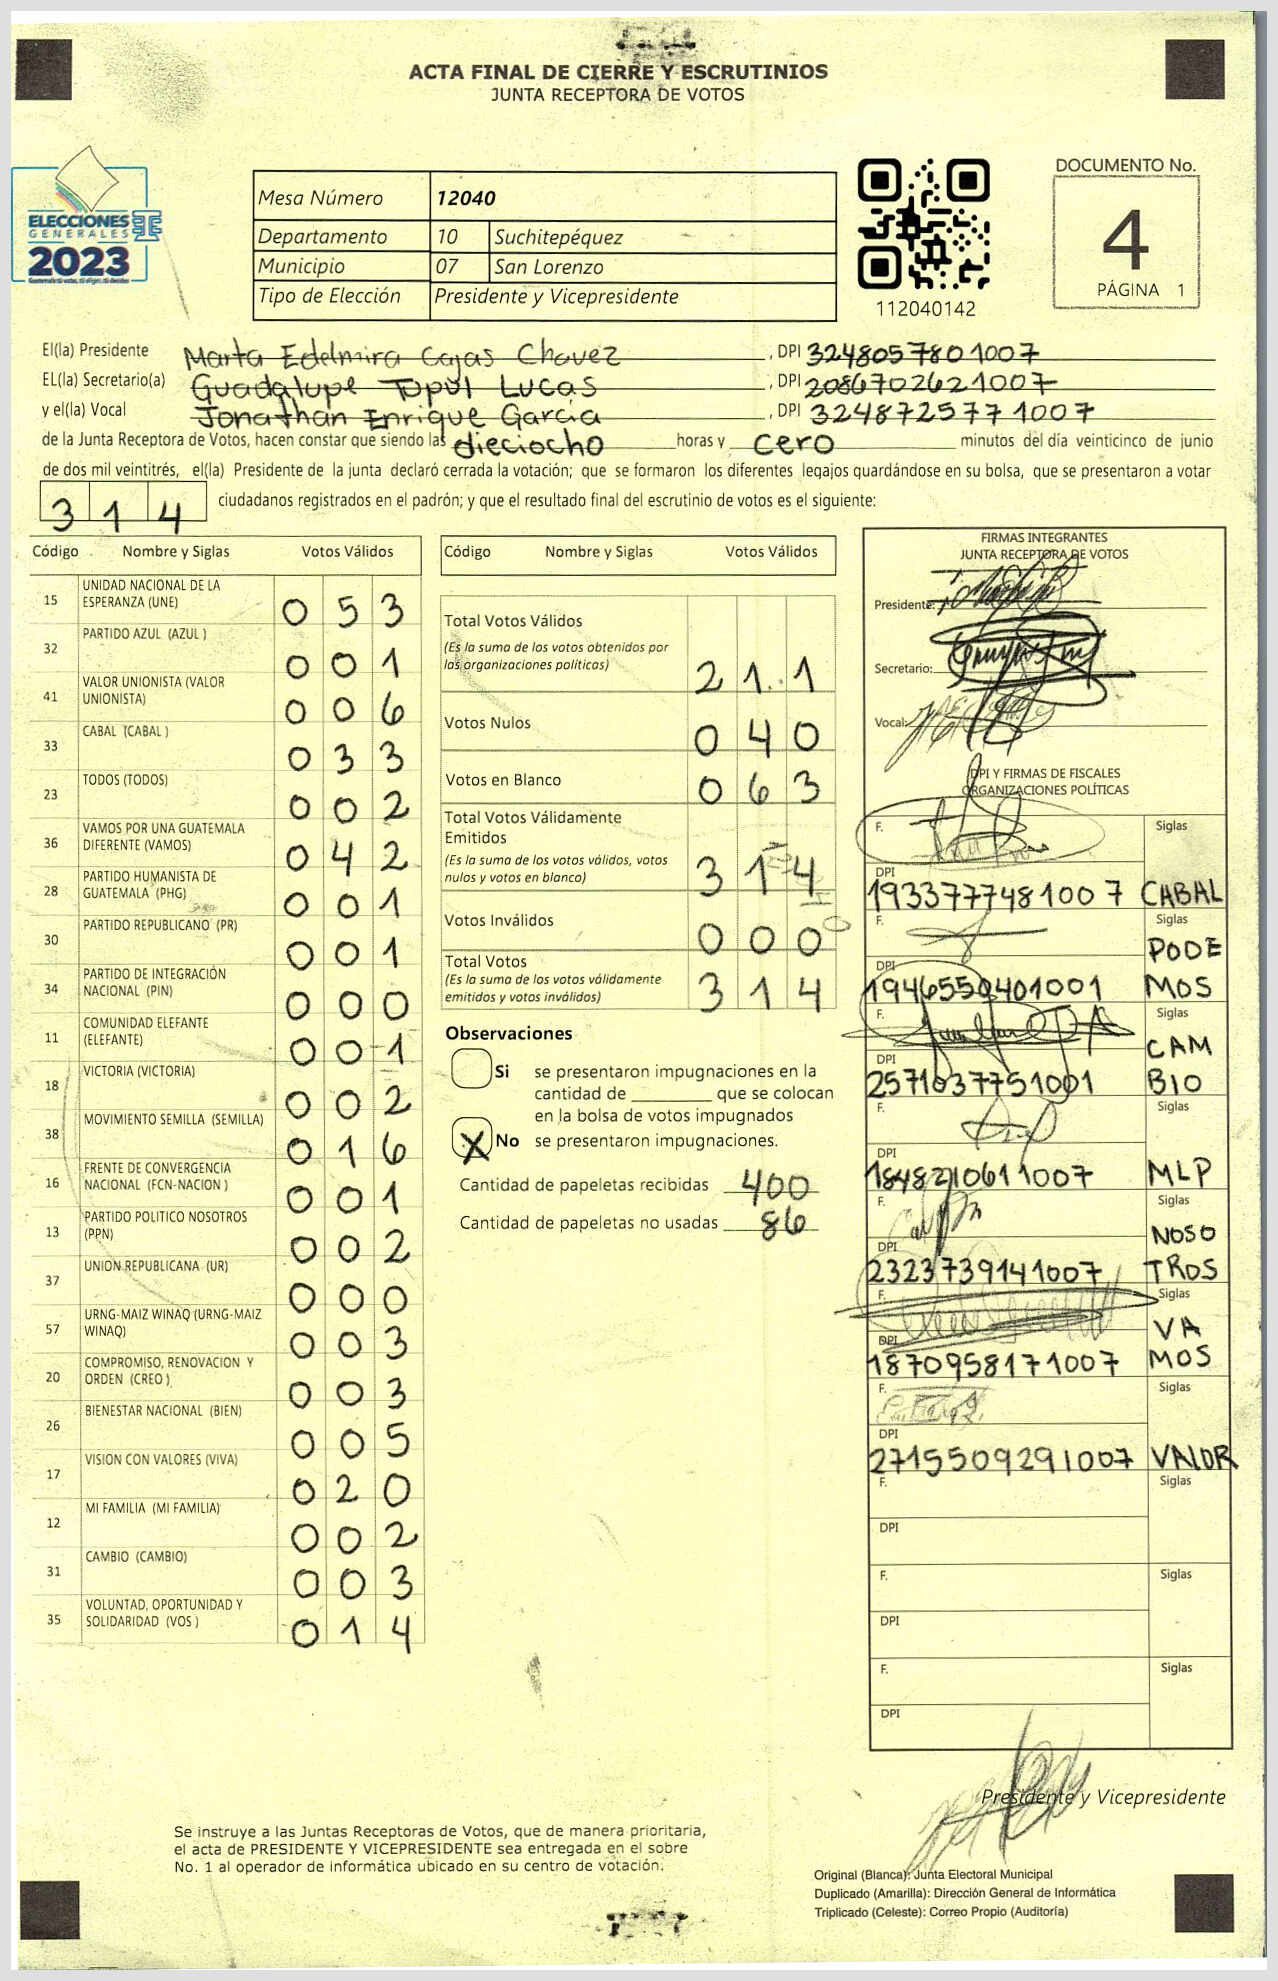 ACTA FINAL DE CIERRE Y ESCRUTINIOS
JUNTA RECEPTORA DE VOTOS
ELECCIONES
GENERALES
2023
Mesa Número 12040
Departamento 10 Suchitepéquez
Municipio 07 San Lorenzo
Tipo de Elección Presidente y Vicepresidente
112040142
DOCUMENTO No.
4
PÁGINA 1
El(la) Presidente Marta Edelmira Cajas Chavez, DPI 3248057801007
EL(la) Secretario(a) Guadalupe Topul Lucas, DPI 2086702621007
y el(la) Vocal Jonathan Enrique García, DPI 3248725771007
de la Junta Receptora de Votos, hacen constar que siendo las dieciocho horas y cero minutos del día veinticinco de junio
de dos mil veintitrés, el(la) Presidente de la junta declaró cerrada la votación; que se formaron los diferentes legajos quardándose en su bolsa, que se presentaron a votar
314 ciudadanos registrados en el padrón; y que el resultado final del escrutinio de votos es el siguiente:
Código Nombre y Siglas Votos Válidos
15 UNIDAD NACIONAL DE LA ESPERANZA (UNE) 053
32 PARTIDO AZUL (AZUL ) 001
41 VALOR UNIONISTA (VALOR UNIONISTA) 006
33 CABAL (CABAL ) 033
23 TODOS (TODOS) 002
36 VAMOS POR UNA GUATEMALA DIFERENTE (VAMOS) 042
28 PARTIDO HUMANISTA DE GUATEMALA (PHG) 001
30 PARTIDO REPUBLICANO (PR) 001
34 PARTIDO DE INTEGRACIÓN NACIONAL (PIN) 000
11 COMUNIDAD ELEFANTE (ELEFANTE) 001
18 VICTORIA (VICTORIA) 002
38 MOVIMIENTO SEMILLA (SEMILLA) 016
16 FRENTE DE CONVERGENCIA NACIONAL (FCN-NACION ) 001
13 PARTIDO POLITICO NOSOTROS (PPN) 002
37 UNION REPUBLICANA (UR) 000
57 URNG-MAIZ WINAQ (URNG-MAIZ WINAQ) 003
20 COMPROMISO, RENOVACION Y ORDEN (CREO ) 003
26 BIENESTAR NACIONAL (BIEN) 005
17 VISION CON VALORES (VIVA) 020
12 MI FAMILIA (MI FAMILIA) 002
31 CAMBIO (CAMBIO) 003
35 VOLUNTAD, OPORTUNIDAD Y SOLIDARIDAD (VOS ) 014
Código Nombre y Siglas Votos Válidos
Total Votos Válidos
(Es la suma de los votos obtenidos por
las organizaciones políticas) 211
Votos Nulos 040
Votos en Blanco 063
Total Votos Válidamente
Emitidos
(Es la suma de los votos válidos, votos
nulos y votos en blanco) 314
Votos Inválidos 000
Total Votos
(Es la suma de los votos válidamente
emitidos y votos inválidos) 314
Observaciones
Si se presentaron impugnaciones en la
cantidad de ________ que se colocan
en la bolsa de votos impugnados
X No se presentaron impugnaciones.
Cantidad de papeletas recibidas 400
Cantidad de papeletas no usadas 86
FIRMAS INTEGRANTES
JUNTA RECEPTORA DE VOTOS
Presidente:
Secretario:
Vocal:
DPI Y FIRMAS DE FISCALES
ORGANIZACIONES POLÍTICAS
F. Siglas
DPI
1933777481007 CABAL
F. Siglas
DPI PODE
1946550401001 MOS
F. Siglas
DPI CAM
2571037751001 BIO
F. Siglas
DPI
1848210611007 MLP
F. Siglas
DPI NOSO
2323739141007 TROS
F. Siglas
DPI VA
1870958171007 MOS
F. Siglas
DPI
2715509291007 VALOR
F. Siglas
DPI
F. Siglas
DPI
F. Siglas
DPI
Presidente y Vicepresidente
Se instruye a las Juntas Receptoras de Votos, que de manera prioritaria,
el acta de PRESIDENTE Y VICEPRESIDENTE sea entregada en el sobre
No. 1 al operador de informática ubicado en su centro de votación.
Original (Blanca): Junta Electoral Municipal
Duplicado (Amarilla): Dirección General de Informática
Triplicado (Celeste): Correo Propio (Auditoría)